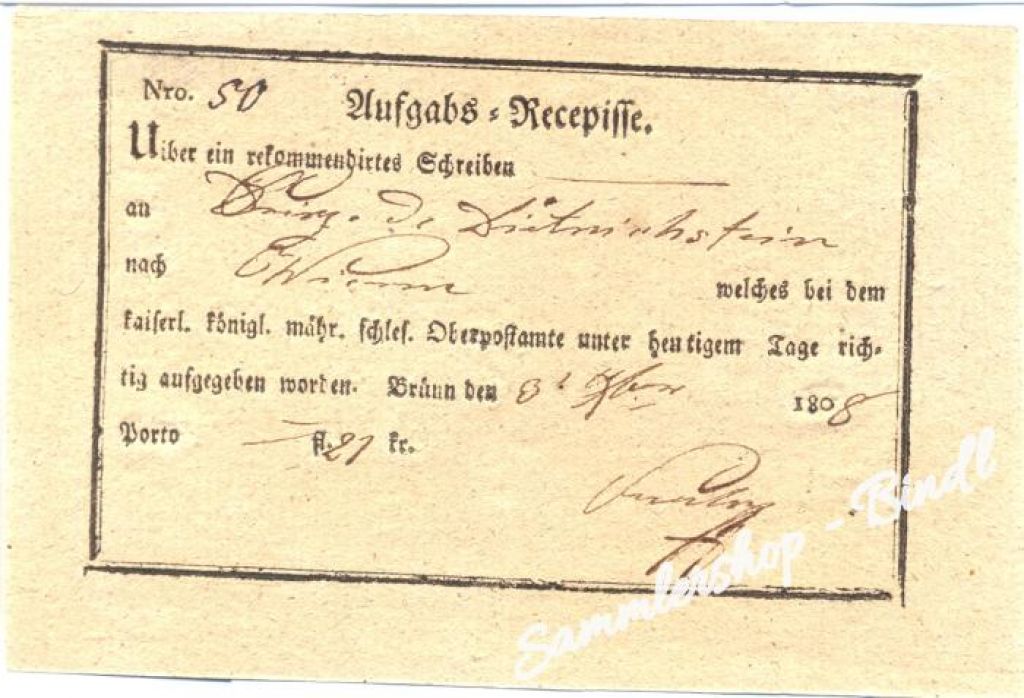 Nro. 50 Aufgabs-Recepisse.
Uiber ein rekommendirtes Schreiben
an de Dietrichstein
nach Wienn welches bei dem
kaiserl. königl. mähr. schles. Oberpostamte unter heutigem Tage rich-
tig aufgegeben worden. Brünn den 3t 1808
Porto — fl. 21 kr.
Sammlershop - Bindl